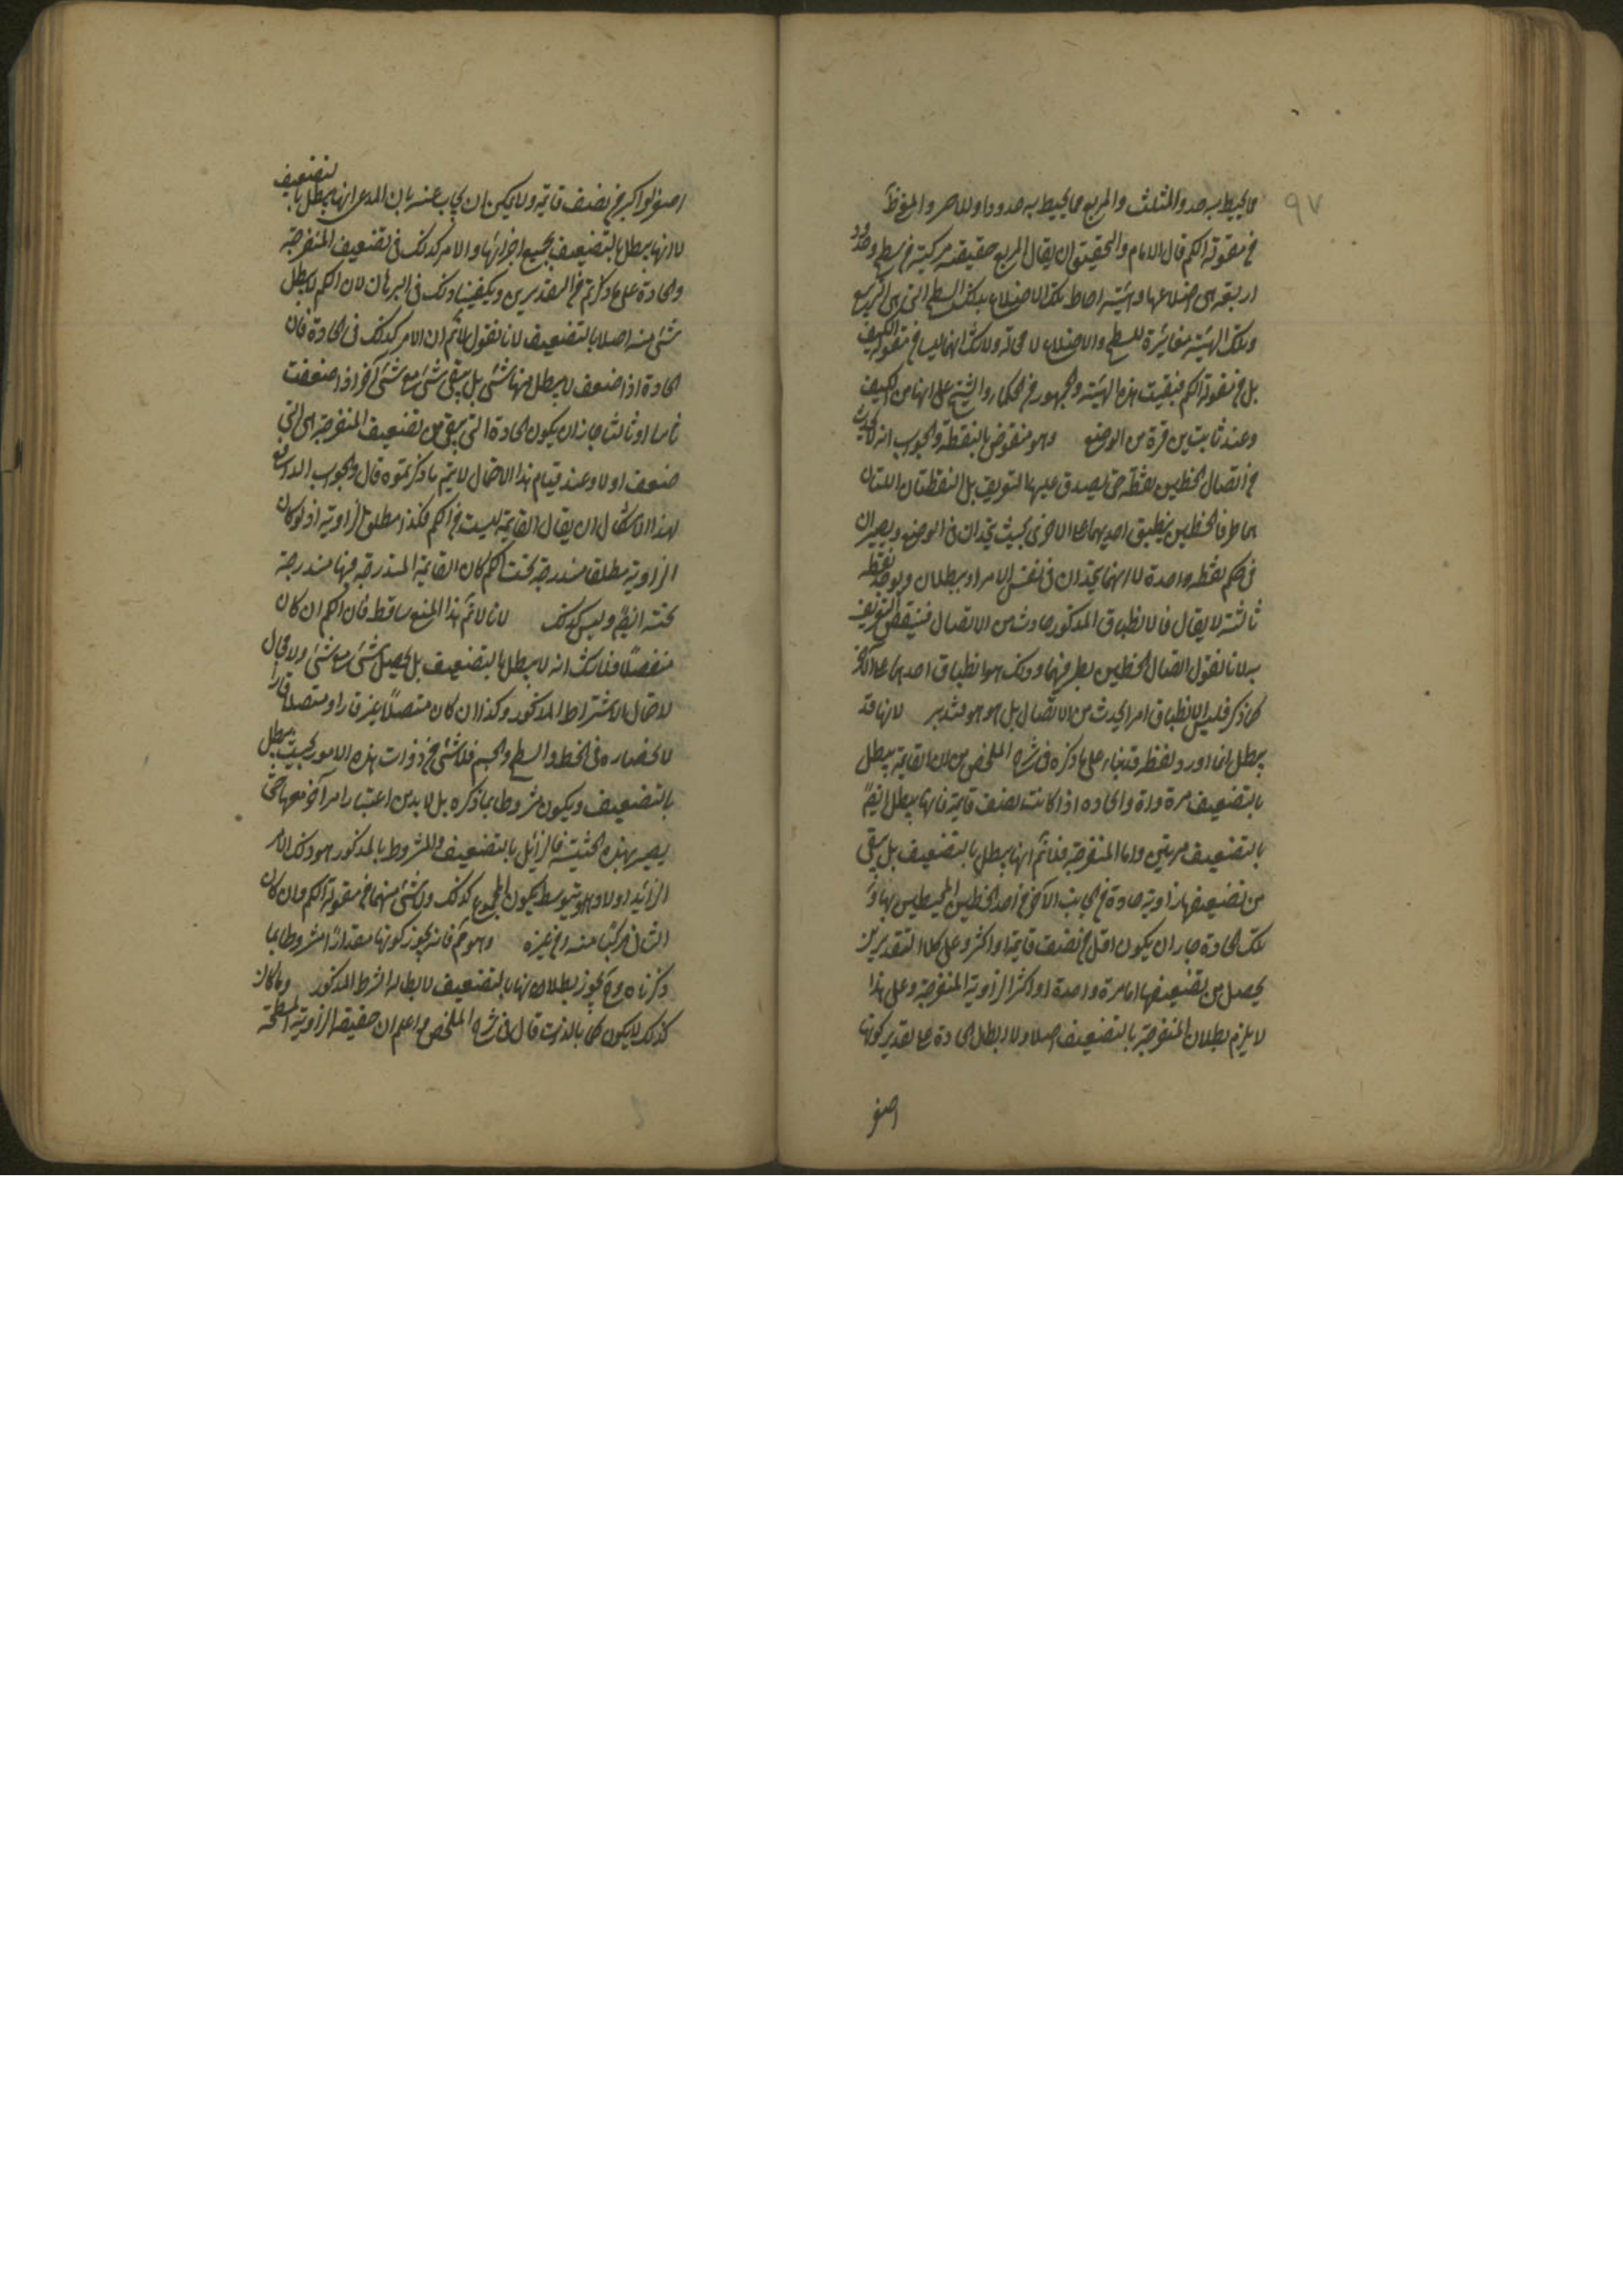 ٩٧
ما يحيط به حد والمثلث والمربع ما يحيط به حدود
من مقولة الكم قال الامام والتحقيق ان يقال المربع حقيقة مركبة من سطح وحدود
اربعة هى اضلاعها وهيئة احاطة تلك الاضلاع بذلك السطح التى هى التربيع
وتلك الهيئة مغايرة للسطح والاضلاع لا محالة ولا شك انهما ليسا من مقولة الكيف
بل من مقولة الكم فبقيت هذه الهيئة والجمهور من الحكماء والشيخ على انها من الكيف
وعند ثابت بن قرة من الوضع وهو منقوض بالنقطة والجواب انه لا يحدث
من اتصال الخطين نقطة حتى يصدق عليها التعريف بل النقطتان اللتان
هما طرفا الخطين ينطبق احديهما على الاخرى بحيث يتحدان فى الوضع ويصيران
فى حكم نقطة واحدة لا انهما يتحدان فى نفس الامر او يبطلان ويوجد نقطة
ثالثة لا يقال فالانطباق المذكور حادث من الاتصال فينتقض التعريف
به لانا نقول اتصال الخطين بطرفيهما وذلك هو انطباق احدهما على الآخر
كما ذكر فليس الانطباق امرا يحدث من الاتصال بل هو هو فتدبر لانها قد
يبطل انما اورد لفظة قد بناء على ما ذكره فى شرح الملخص من ان القايمة يبطل
بالتضعيف مرة واحدة والحادة اذا كانت نصف قايمة فانها يبطل ايضا
بالتضعيف مرتين واما المنفرجة فلا نم انها يبطل بالتضعيف بل يبقى
من تضعيفها زاوية حادة فى الجانب الآخر من احد الخطين المحيطين بها
تلك الحادة جاز ان يكون اقل من نصف قايمة او اكثر وعلى كلا التقديرين
يحصل من تضعيفها اما مرة واحدة او اكثر الزاوية المنفرجة وعلى هذا
لا يلزم بطلان المنفرجة بالتضعيف اصلا ولا بطلان الحادة على تقدير كونها
اصغر
اصغر او اكبر من نصف قايمة ولا يمكن ان يجاب عنه بان المدعى انها يبطل بالتضعيف
لا انها يبطل بالتضعيف بجميع اجزائها والامر كذلك فى تضعيف المنفرجة
والحادة على ما ذكرتم من التقديرين ويكفينا ذلك فى البرهان لان الكم لا يبطل
شئ منه اصلا بالتضعيف لانا نقول لا نم ان الامر كذلك فى الحادة فان
الحادة اذا ضعف لا يبطل منها شئ بل يبقى شئ مع شئ آخر اذا ضعفت
ثانيا او ثالثا جاز ان يكون الحادة التى يبقى من تضعيف المنفرجة هى التى
ضعف اولا وعند قيام هذا الاحتمال لا يتم ما ذكرتموه قال والجواب الدافع
لهذا الاشكال ان يقال القايمة ليست من الكم فكذا مطلق الزاوية اذ لو كان
الزاوية مطلقا مندرجة تحت الكم كان القايمة المندرجة فيها مندرجة
تحته ايضا وليس كذلك لانا لا نم هذا المنع ساقط فان الكم ان كان
منفصلا فلا شك انه لا يبطل بالتضعيف بل يحصل شئ مع شئ ولا مجال
لاحتمال الاشتراط المذكور وكذا ان كان متصلا غير قار او متصلا قارا
لانحصاره فى الخط والسطح والجسم فلا شئ من ذوات هذه الامور بحيث يبطل
بالتضعيف ويكون مشروطا بما ذكره بل لا بد من اعتبار امر آخر معها حتى
يصير بهذه الحيثية فالزائل بالتضعيف والمشروط بالمذكور هو ذلك الامر
الزائد اولا وهو بتوسطه يكون المجموع كذلك ولا شئ منهما من مقولة الكم وان كان
الثانى مركبا منه ومن غيره وهو نم فانه يجوز كونها مقدارا مشروطا بما
ذكرناه وح يجوز بطلانها بالتضعيف لابطاله الشرط المذكور وما كان
كذلك لا يكون كما بالذات قال فى شرح الملخص واعلم ان حقيقة الزاوية المسطحة